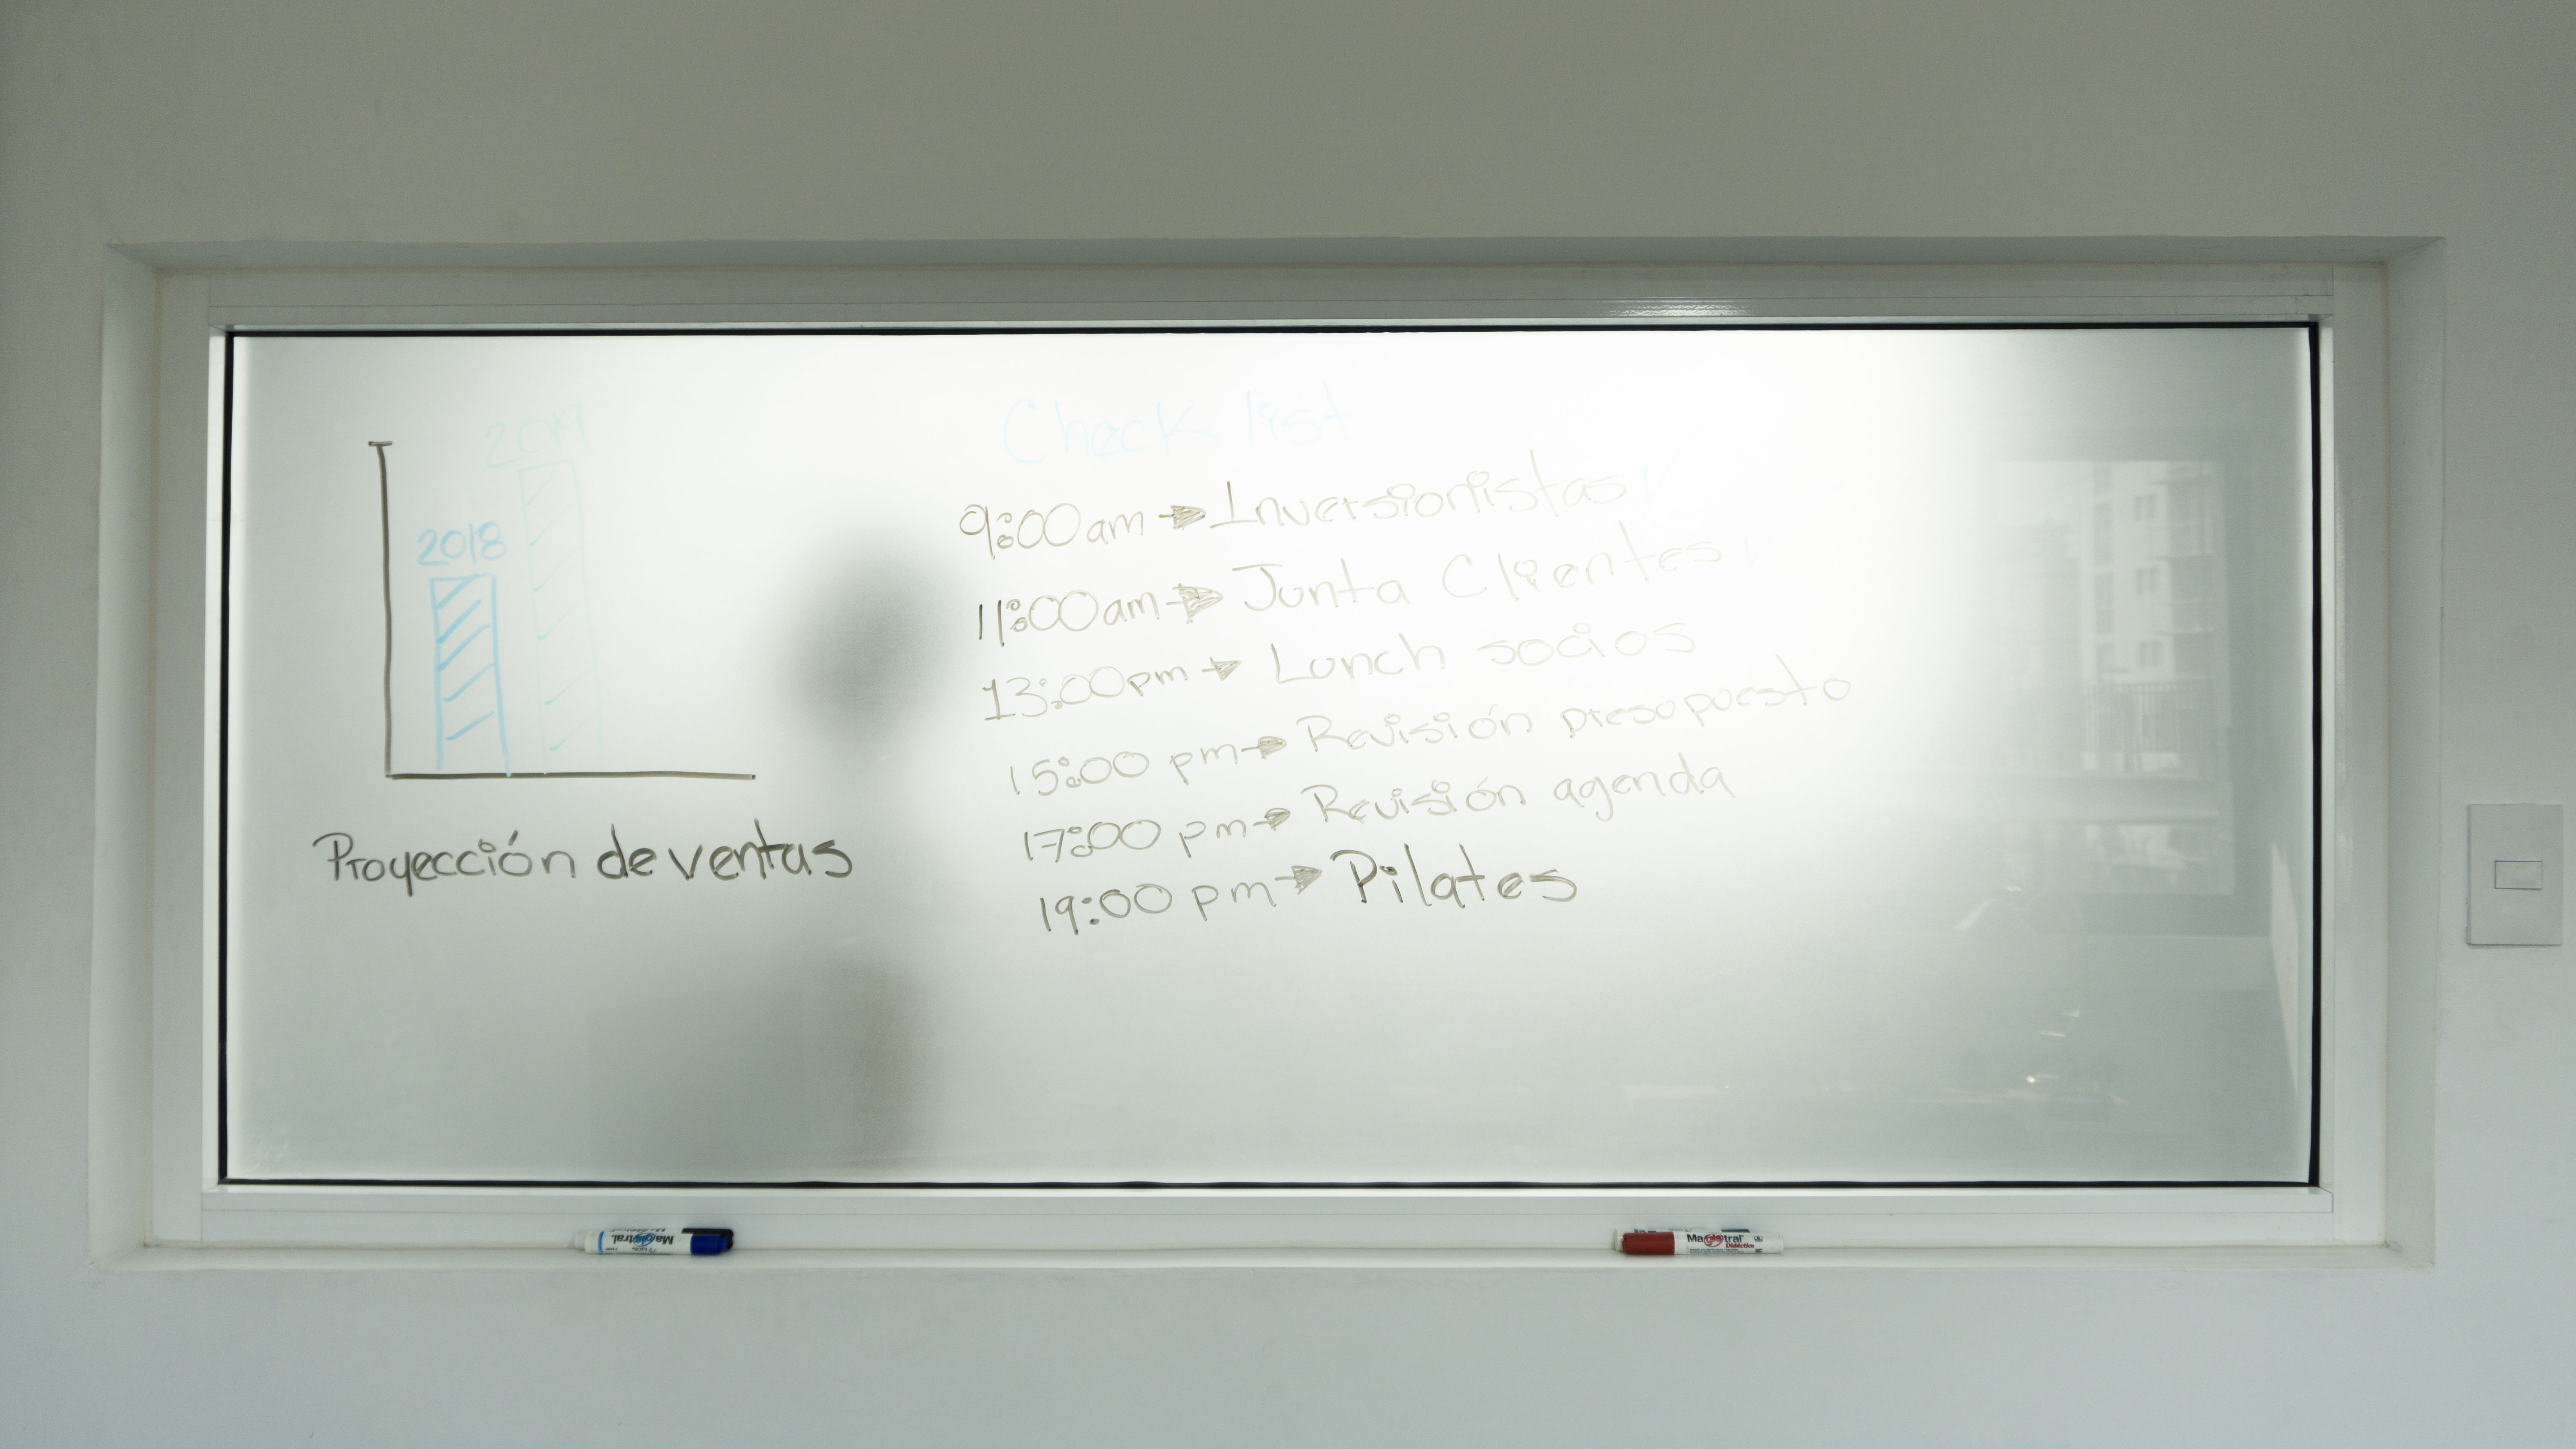 2019
2018
Proyección de ventas
Check list
9:00am → Inversionistas
11:00am → Junta Clientes
13:00pm → Lunch socios
15:00 pm → Revisión presupuesto
17:00 pm → Revisión agenda
19:00 pm → Pilates
Magistral
Magistral
Didáctico